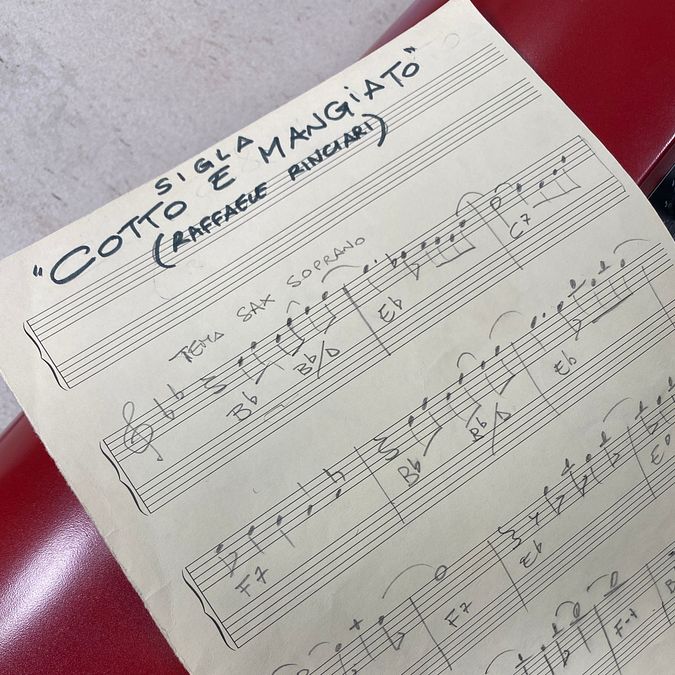 SIGLA
"COTTO E MANGiATO"
(RAFFAELE RINCIARI)
TEMA SAX SOPRANO
Bb Bb/D Eb C7
F7 Bb Bb/D Eb
F7 Eb